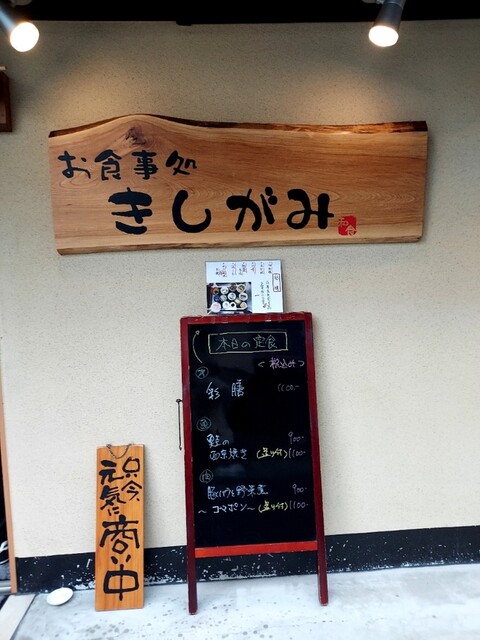 お食事処
きしがみ
本日の定食
<税込み>
彩 膳 1100-
魚
鮭の 900-
西京焼き (造り付) 1100-
肉
豚しゃぶと野菜 900-
〜ゴマポン〜 (造り付) 1100-
只今
元気に
商い中